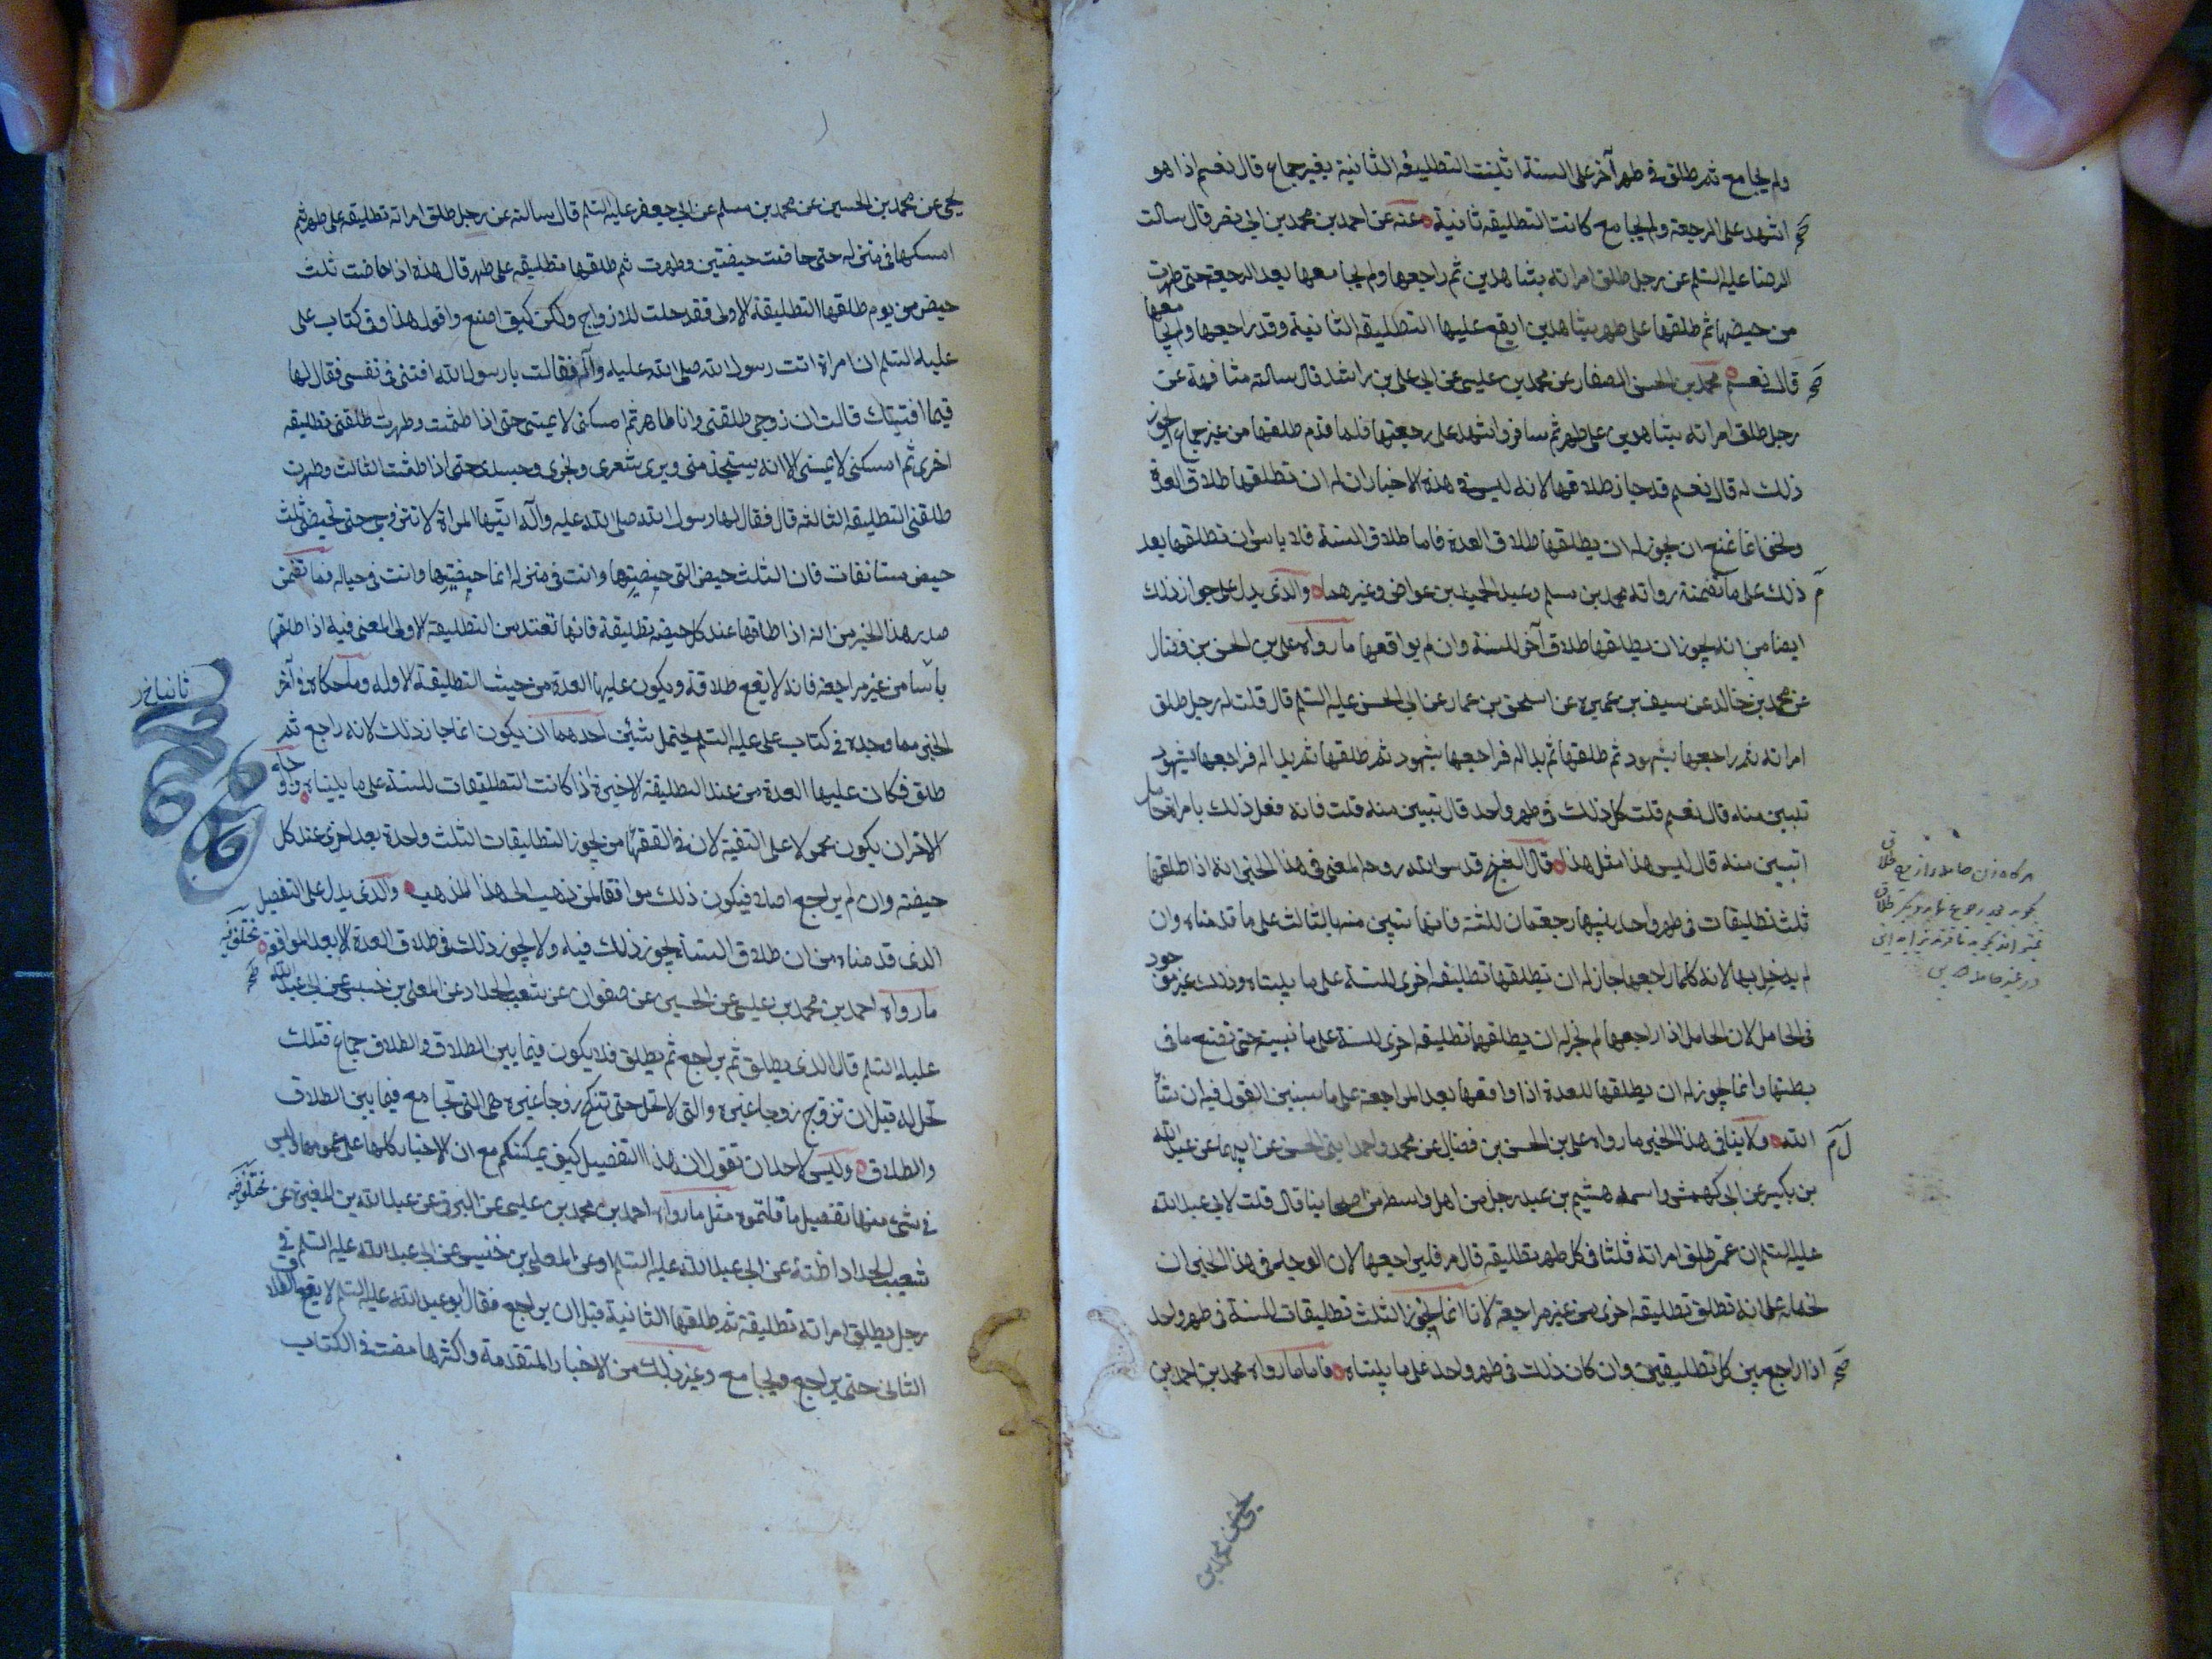 ولم يجامع ثم طلق في طهر آخر على السنة اتثبت التطليقة الثانية بغير جماع قال نعم اذا هو
اشهد على الرجعة ولم يجامع كانت التطليقة ثانية عنه عن احمد بن محمد بن ابي نصر قال سالت
الرضا عليه السلم عن رجل طلق امراته بشاهدين ثم راجعها ولم يجامعها بعد الرجعة حتى طهرت
من حيضها ثم طلقها على طهر بشاهدين ايقع عليها التطليقة الثانية وقد راجعها ولم يجامعها
قال نعم محمد بن الحسن الصفار عن محمد بن عيسى عن ابي علي بن راشد قال سالته مشافهة عن
رجل طلق امراته بشاهدين على طهر ثم سافر واشهد على رجعتها فلما قدم طلقها من غير جماع ايجوز
ذلك له قال نعم قد جاز طلاقها لانه ليس في هذه الاخبار ان له ان تطلقها طلاق العدة
ونحن انما نمنع ان يجوز له ان يطلقها طلاق العدة فاما طلاق السنة فلا باس ان تطلقها بعد
ذلك على ما تضمنه رواته محمد بن مسلم وعبد الحميد بن عواض وغيرهما والذي يدل على جواز ذلك
ايضا من انه يجوز ان يطلقها طلاق آخر للسنة وان لم يواقعها ما رواه علي بن الحسن بن فضال
عن محمد بن خالد عن سيف بن عميره عن اسحق بن عمار عن ابي الحسن عليه السلم قال قلت له رجل طلق
امراته ثم راجعها بشهود ثم طلقها ثم بدا له فراجعها بشهود ثم طلقها ثم بدا له فراجعها بشهود
تبين منه قال نعم قلت كل ذلك في طهر واحد قال تبين منه قلت فانه فعل ذلك بامراة حامل
اتبين منه قال ليس هذا مثل هذا قال الشيخ قدس الله روحه المعنى في هذا الخبر انه اذا طلقها
ثلث تطليقات في طهر واحد بينها رجعتان للسنة فانها تبين منه بالثالث على ما قدمناه وان
لم يدخل بها لانه كلما راجعها جاز له ان يطلقها تطليقة اخرى للسنة على ما بيناه وذلك غير موجود
في الحامل لان الحامل اذا راجعها لم يجز له ان يطلقها تطليقة اخرى للسنة على ما نبينه حتى تضع ما في
بطنها وانما يجوز له ان يطلقها للعدة اذا واقعها بعد المراجعة على ما سنبين القول فيه ان شاء
الله ولا ينافي هذا الخبر ما رواه علي بن الحسن بن فضال عن محمد واحمد ابني الحسن عن ابيهما عن عبد الله
بن بكير عن ابي كهمش واسمه هشيم بن عبيد رجل من اهل واسط من اصحابنا قال قلت لابي عبد الله
عليه السلم ان عمي طلق امراته ثلثا في كل طهر تطليقة قال مره فليراجعها لان الوجه في هذا الخبر ان
نحمله على انه تطلق تطليقة اخرى من غير مراجعة لانا انما نجوز الثلث تطليقات للسنة في طهر واحد
اذا راجع بين كل تطليقتين وان كان ذلك في طهر واحد على ما بيناه فاما ما رواه محمد بن احمد بن
يحيى عن محمد بن
يحيى عن محمد بن الحسين عن محمد بن مسلم عن ابي جعفر عليه السلم قال سالته عن رجل طلق امراته تطليقة على طهر ثم
امسكها في منزله حتى حاضت حيضتين وطهرت ثم طلقها تطليقة على طهر قال هذه اذا حاضت ثلث
حيض من يوم طلقها التطليقة الاولى فقد حلت للازواج ولكن كيف اصنع واقول هذا وفي كتاب علي
عليه السلم ان امراة اتت رسول الله صلى الله عليه وآله فقالت يا رسول الله افتني في نفسي فقال لها
فيما افتيتك قالت ان زوجي طلقني وانا طاهر ثم امسكني لا يمسني حتى اذا طمثت وطهرت طلقني تطليقة
اخرى ثم امسكني لا يمسني الا انه يستخدمني ويرى شعري ونحري وجسدي حتى اذا طمثت الثالث وطهرت
طلقني التطليقة الثالثة قال فقال لها رسول الله صلى الله عليه وآله ايتها المراة لا تتزوجي حتى تحيضي ثلث
حيض مستانفات فان الثلث حيض التي حيضتيها وانت في منزله انما حيضتيها وانت في حياله فما تضمن
صدر هذا الخبر من انه اذا طلقها عند كل حيضة تطليقة فانها تعتد من التطليقة الاولى المعنى فيه اذا طلقها
ثانيا من غير مراجعة فانه لا يقع طلاقه ويكون عليها العدة من حيث التطليقة الاوله وما حكاه في آخر
الخبر مما وجده في كتاب علي عليه السلم يحتمل شيئين احدهما ان يكون انما جاز ذلك لانه راجع ثم
طلق فكان عليها العدة من عند التطليقة الاخيرة اذا كانت التطليقات للسنة على ما بيناه
الاخر ان يكون محمولا على التقية لان في الفقهاء من يجوز التطليقات الثلث واحدة بعد اخرى عند كل
حيضة وان لم يراجع اصلا فيكون ذلك موافقا لمن ذهب الى هذا المذهب والذي يدل على التفصيل
الذي قدمناه من ان طلاق السنة يجوز ذلك فيه ولا يجوز ذلك في طلاق العدة الا بعد المواقعة
ما رواه احمد بن محمد بن عيسى عن الحسين عن صفوان عن شعيب الحداد عن المعلى بن خنيس عن ابي عبد الله
عليه السلم قال الذي يطلق ثم يراجع ثم يطلق فلا يكون فيما بين الطلاق والطلاق جماع فتلك
تحل له قبل ان تزوج زوجا غيره والتي لا تحل حتى تنكح زوجا غيره هي التي تجامع فيما بين الطلاق
والطلاق وليس لاحد ان يقول ان هذا التفصيل كيف يمكنكم مع ان الاخبار كلها على عمومها وليس
في شيء منها تفصيل ما قلتموه مثل ما رواه احمد بن محمد بن عيسى عن البرقي عن عبد الله بن المغيرة عن
شعيب الحداد اظنه عن ابي عبد الله عليه السلم او عن المعلى بن خنيس عن ابي عبد الله عليه السلم في
رجل يطلق امراته تطليقة ثم طلقها الثانية قبل ان يراجع فقال ابو عبد الله عليه السلم لا يقع الطلاق
الثاني حتى يراجع ويجامع وغير ذلك من الاخبار المتقدمة واكثرها مضت في الكتاب